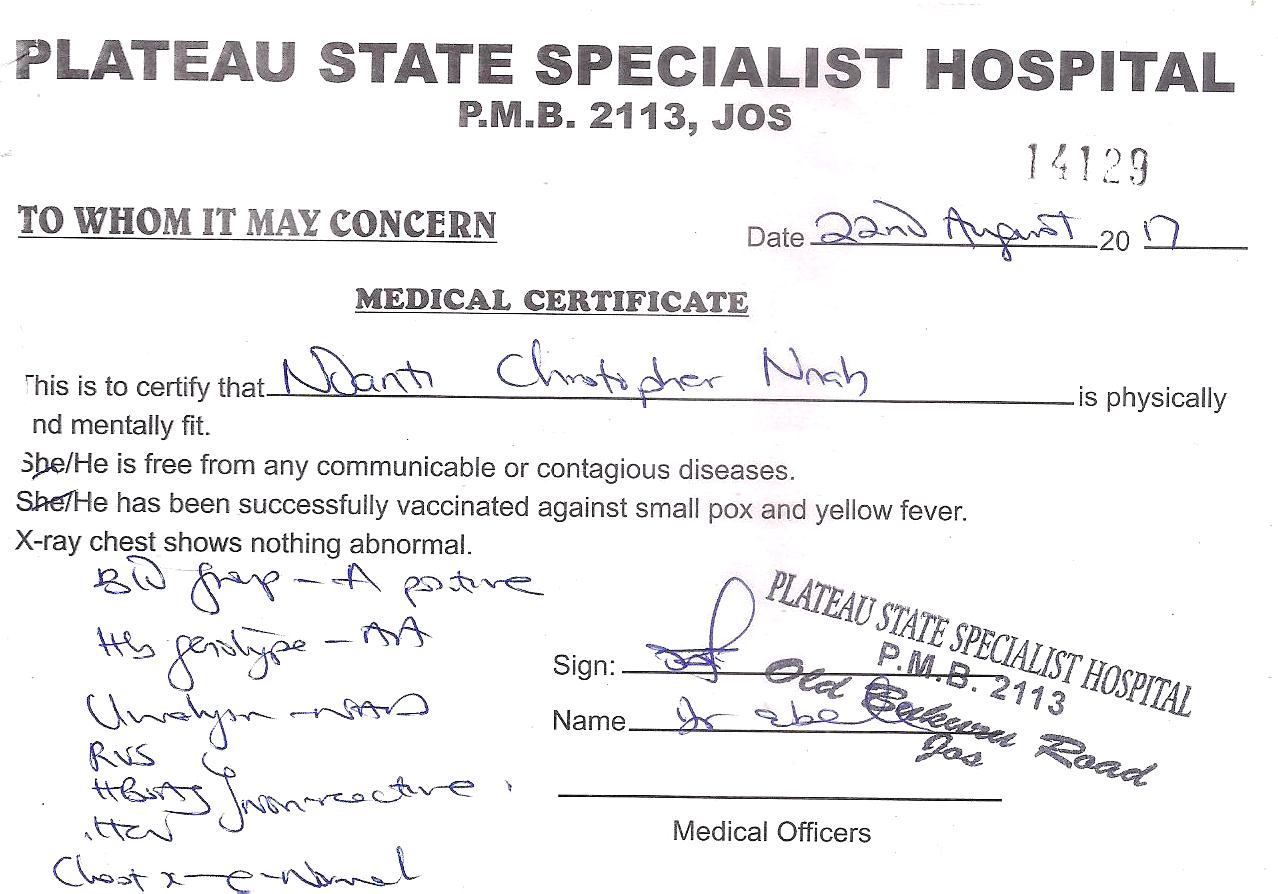 PLATEAU STATE SPECIALIST HOSPITAL
P.M.B. 2113, JOS
14129
TO WHOM IT MAY CONCERN
Date 22nd August 2017
MEDICAL CERTIFICATE
This is to certify that Christopher Nnah is physically
nd mentally fit.
She/He is free from any communicable or contagious diseases.
She/He has been successfully vaccinated against small pox and yellow fever.
X-ray chest shows nothing abnormal.
Bld group - A positive
Hb genotype - AA
Urinalysis - NAD
RVS
HBsAg non-reactive
HCV
Chest x-e-Normal
Sign:
Name Dr
Medical Officers
PLATEAU STATE SPECIALIST HOSPITAL
P.M.B. 2113
Old Bukuru Road
Jos